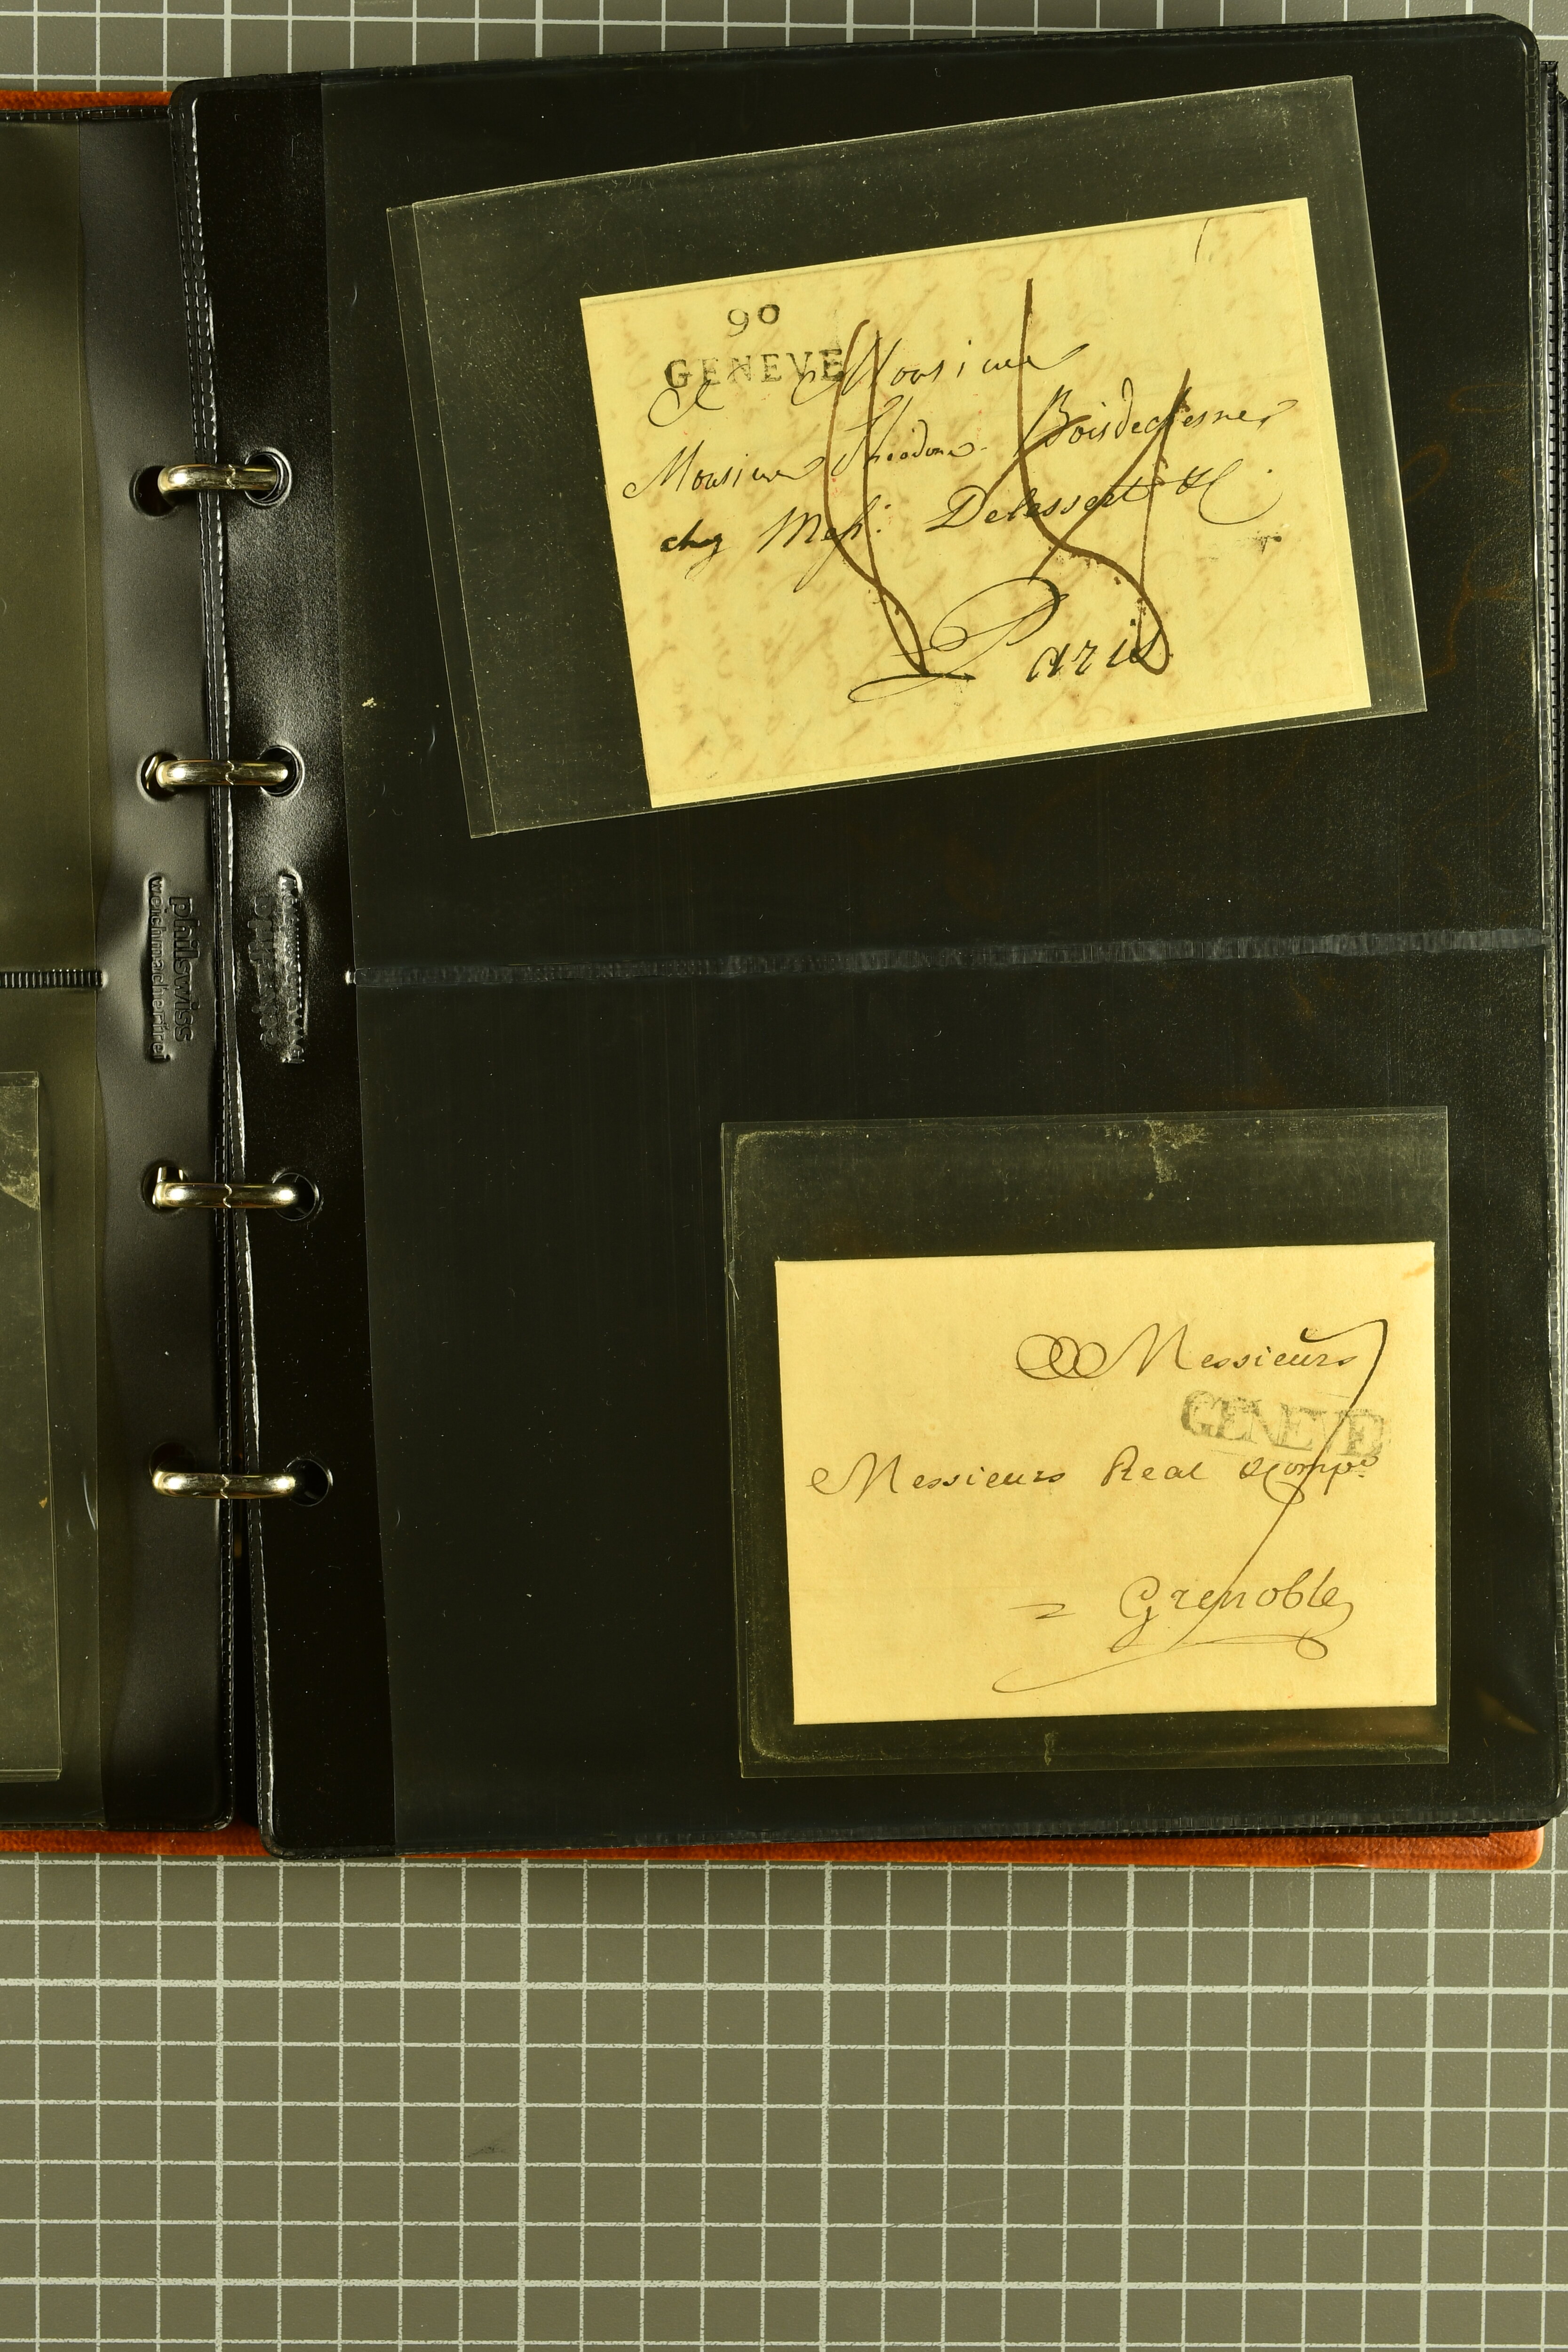 90
GENEVE
A Monsieur
Monsieur Théodore Boisdechesne
chez Mess: Delessert & C
Paris
philswiss
weichmacherfrei
Messieurs
GENEVE
Messieurs Real & Comp.e
Grenoble